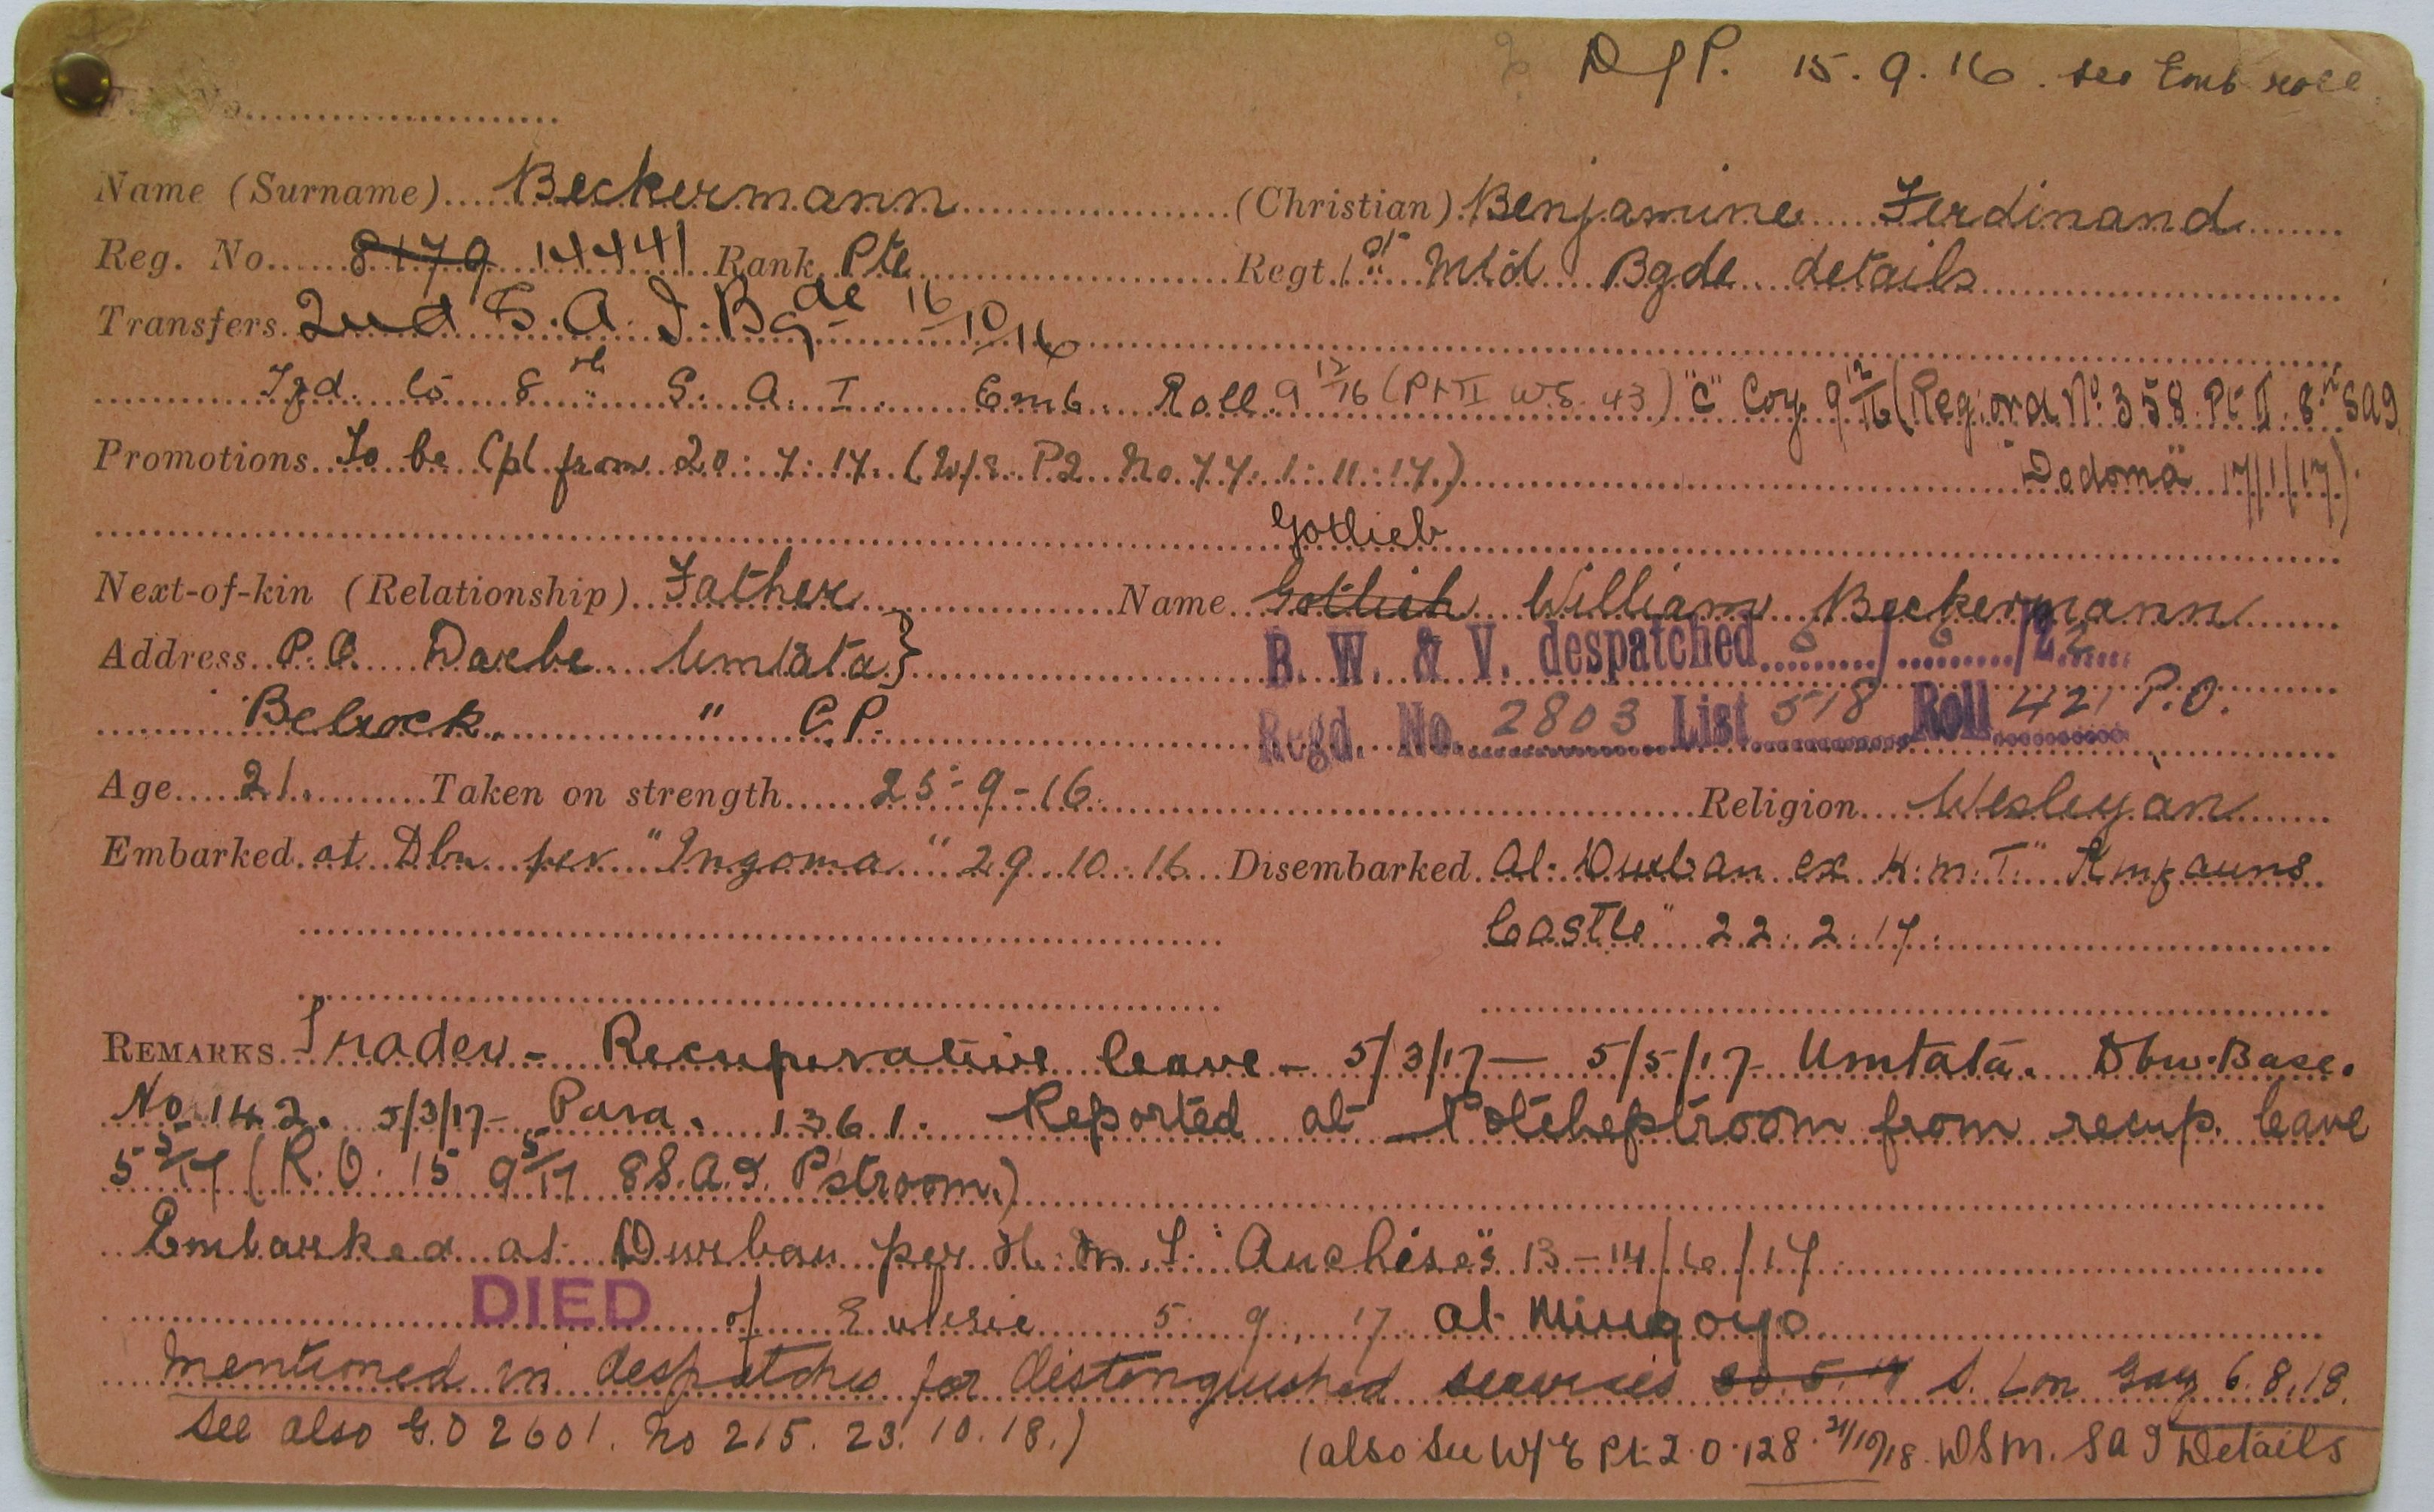 D of P. 15.9.16. see Emb roll.
No
Name (Surname) Beckermann (Christian) Benjamine Ferdinand
Reg. No. 8179 14441 Rank Pte Regt. 1st Mtd Bgde details
Transfers 2nd S.A.I. Bgde 16/10/16
Tfd. to 8th S.A.I. Emb. Roll 9 12/16 (Pt II WE 43) "C" Coy 9 12/16 (Reg. ord No. 358 Pt II 8th SAI
Promotions To be Cpl from 20:7:17. (W/E P2 No 77. 1:11:17.) "Dodoma" 17/1/17).
Gotlieb
Next-of-kin (Relationship) Father Name Gotlieh William Beckermann
Address P.O. Darbe Umtata}
B. W. & V. despatched 6/6/22
Belrock. " C.P.
Regd. No. 2803 List 518 Roll 421 P.O.
Age 21. Taken on strength 25-9-16 Religion Wesleyan
Embarked at Dbn per "Ingoma" 29.10.16 Disembarked At Durban ex H.M.T. "Kinfauns
Castle" 22.2.17.
REMARKS Trader - Recuperative leave - 5/3/17 - 5/5/17 Umtata. Dbn. Base.
No 142. 5/3/17 - Para. 1361. Reported at Potchefstroom from recup. leave
5 5/17 (R.O. 15 9 5/17 8 S.A.I. P'stroom.)
Embarked at Durban per H.M.T. "Anchises" 13-14/6/17
DIED of Enteric 5. 9. 17 at Mingoyo
Mentioned in despatches for distinguished services 30.5.17 S. Lon Gaz 6.8.18.
See also G.O 2601. No 215. 23.10.18.) (also See W/E Pt 2.0.128. 21/10/18. DSM. SAI Details